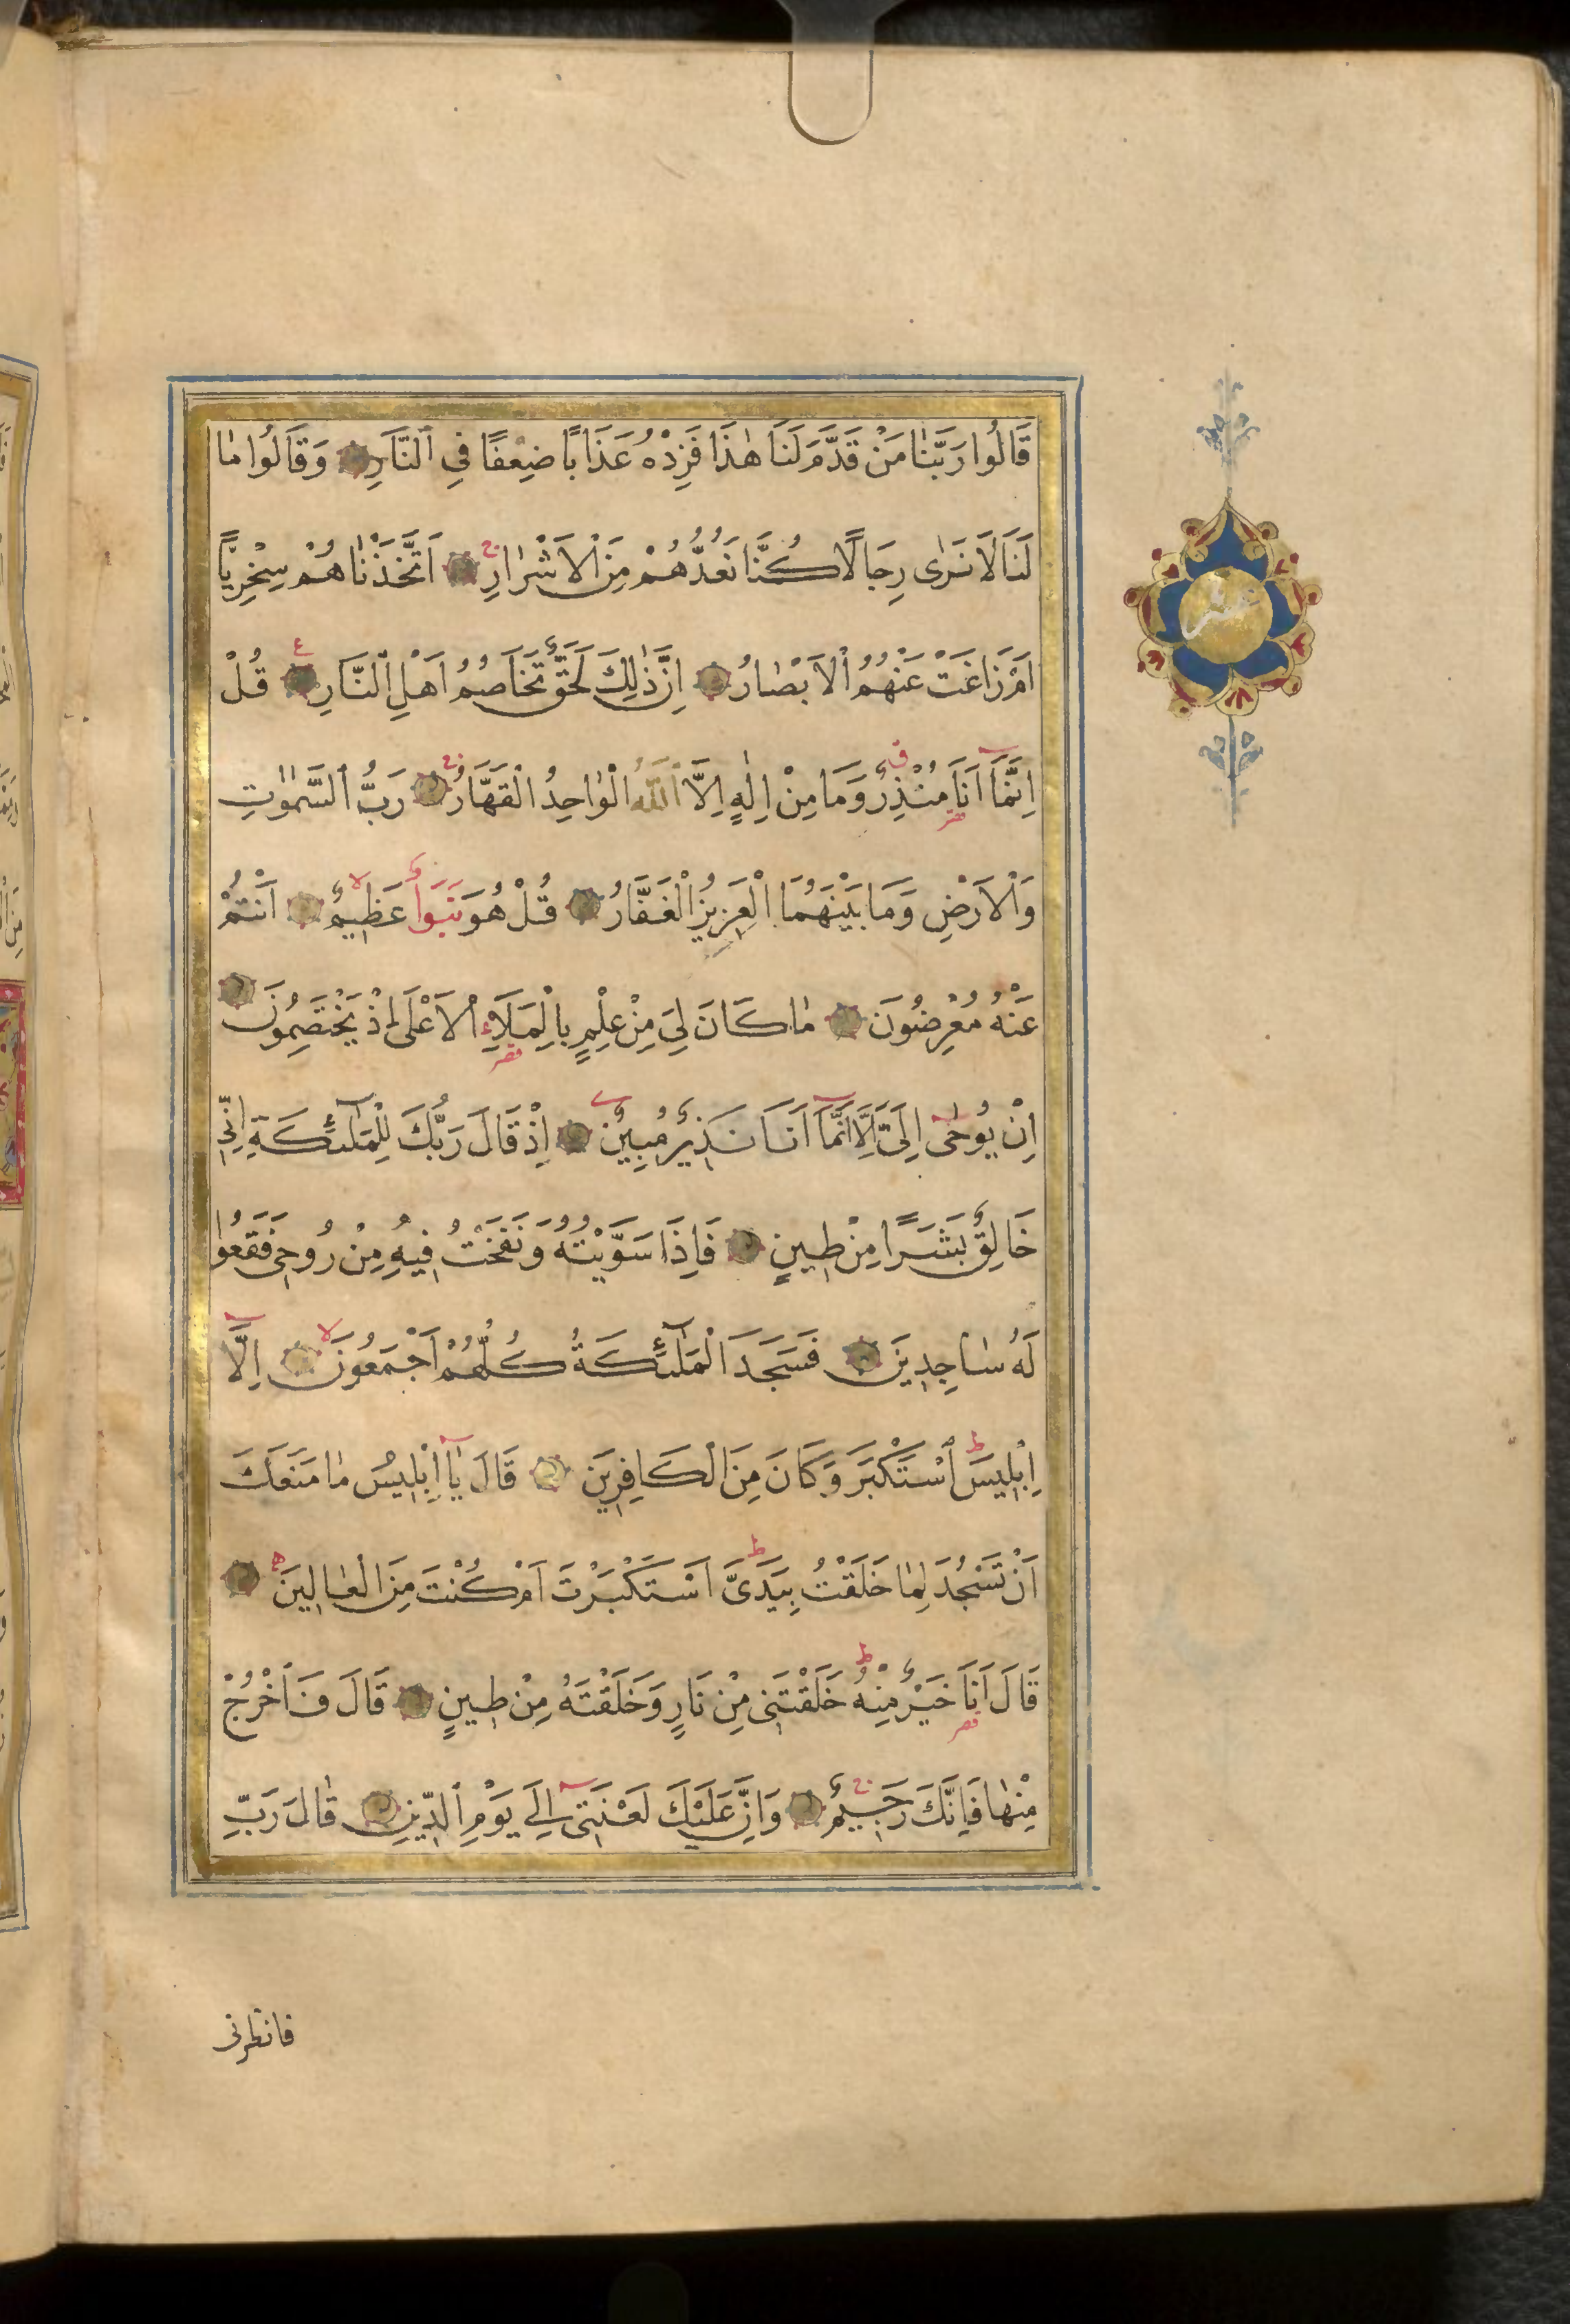 قَالُوا رَبَّنَا مَنْ قَدَّمَ لَنَا هٰذَا فَزِدْهُ عَذَابًا ضِعْفًا فِي النَّارِ وَقَالُوا مَا
لَنَا لَا نَرٰى رِجَالًا كُنَّا نَعُدُّهُمْ مِنَ الْاَشْرَارِ ج اَتَّخَذْنَاهُمْ سِخْرِيًّا
اَمْ زَاغَتْ عَنْهُمُ الْاَبْصَارُ اِنَّ ذٰلِكَ لَحَقٌّ تَخَاصُمُ اَهْلِ النَّارِ ع قُلْ
اِنَّمَا اَنَا مُنْذِرٌ ق وَمَا مِنْ اِلٰهٍ اِلَّا اللّٰهُ الْوَاحِدُ الْقَهَّارُ ج رَبُّ السَّمٰوَاتِ
وَالْاَرْضِ وَمَا بَيْنَهُمَا الْعَزِيزُ الْغَفَّارُ قُلْ هُوَ نَبَؤٌا عَظِيمٌ لا اَنْتُمْ
عَنْهُ مُعْرِضُونَ مَا كَانَ لِيَ مِنْ عِلْمٍ بِالْمَلَاِء الْاَعْلٰى اِذْ يَخْتَصِمُونَ
اِنْ يُوحٰى اِلَيَّ اِلَّا اَنَّمَا اَنَا نَذِيرٌ مُبِينٌ اِذْ قَالَ رَبُّكَ لِلْمَلٰٓئِكَةِ اِنِّي
خَالِقٌ بَشَرًا مِنْ طِينٍ فَاِذَا سَوَّيْتُهُ وَنَفَخْتُ فِيهِ مِنْ رُوحِي فَقَعُوا
لَهُ سَاجِدِينَ فَسَجَدَ الْمَلٰٓئِكَةُ كُلُّهُمْ اَجْمَعُونَ لا اِلَّا
اِبْلِيسَ ط اسْتَكْبَرَ وَكَانَ مِنَ الْكَافِرِينَ قَالَ يَا اِبْلِيسُ مَا مَنَعَكَ
اَنْ تَسْجُدَ لِمَا خَلَقْتُ بِيَدَيَّ ط اَسْتَكْبَرْتَ اَمْ كُنْتَ مِنَ الْعَالِينَ ه
قَالَ اَنَا خَيْرٌ مِنْهُ ط خَلَقْتَنِي مِنْ نَارٍ وَخَلَقْتَهُ مِنْ طِينٍ قَالَ فَاخْرُجْ
مِنْهَا فَاِنَّكَ رَجِيمٌ ج وَاِنَّ عَلَيْكَ لَعْنَتِي اِلٰى يَوْمِ الدِّينِ قَالَ رَبِّ
فانظرنى
عشر